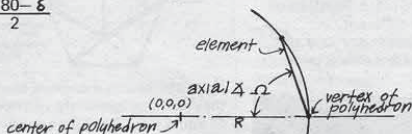 80-δ
2
element
axial ∡ Ω
(0,0,0)
vertex of
polyhedron
R
center of polyhedron